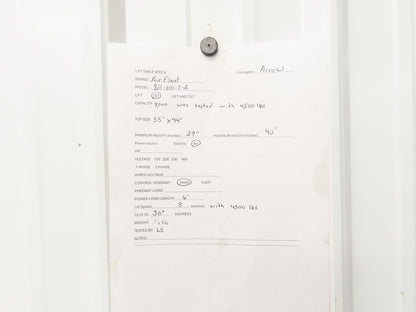 LIFT TABLE SPECS Consigner Arrow
BRAND: Air Float
MODEL:
LIFT LIFT AND TILT
CAPACITY 8000 was tested with 4500 lbs
TOP SIZE 55" x 44"
MINIMUM HEIGHT (inches) 29" MAXIMUM HEIGHT (inches) 40"
Power source Electric Air
HP
VOLTAGE 120 208 230 460
1 PHASE 3 PHASE
WIRED VOLTAGE
CONTROL PENDANT: HAND FOOT
PENDANT CORD
POWER CORD LENGTH 6'
Lift Speed 8 seconds with 4500 lbs
TILTS TO 30° DEGREES
WEIGHT
TESTED BY: LS
NOTES: